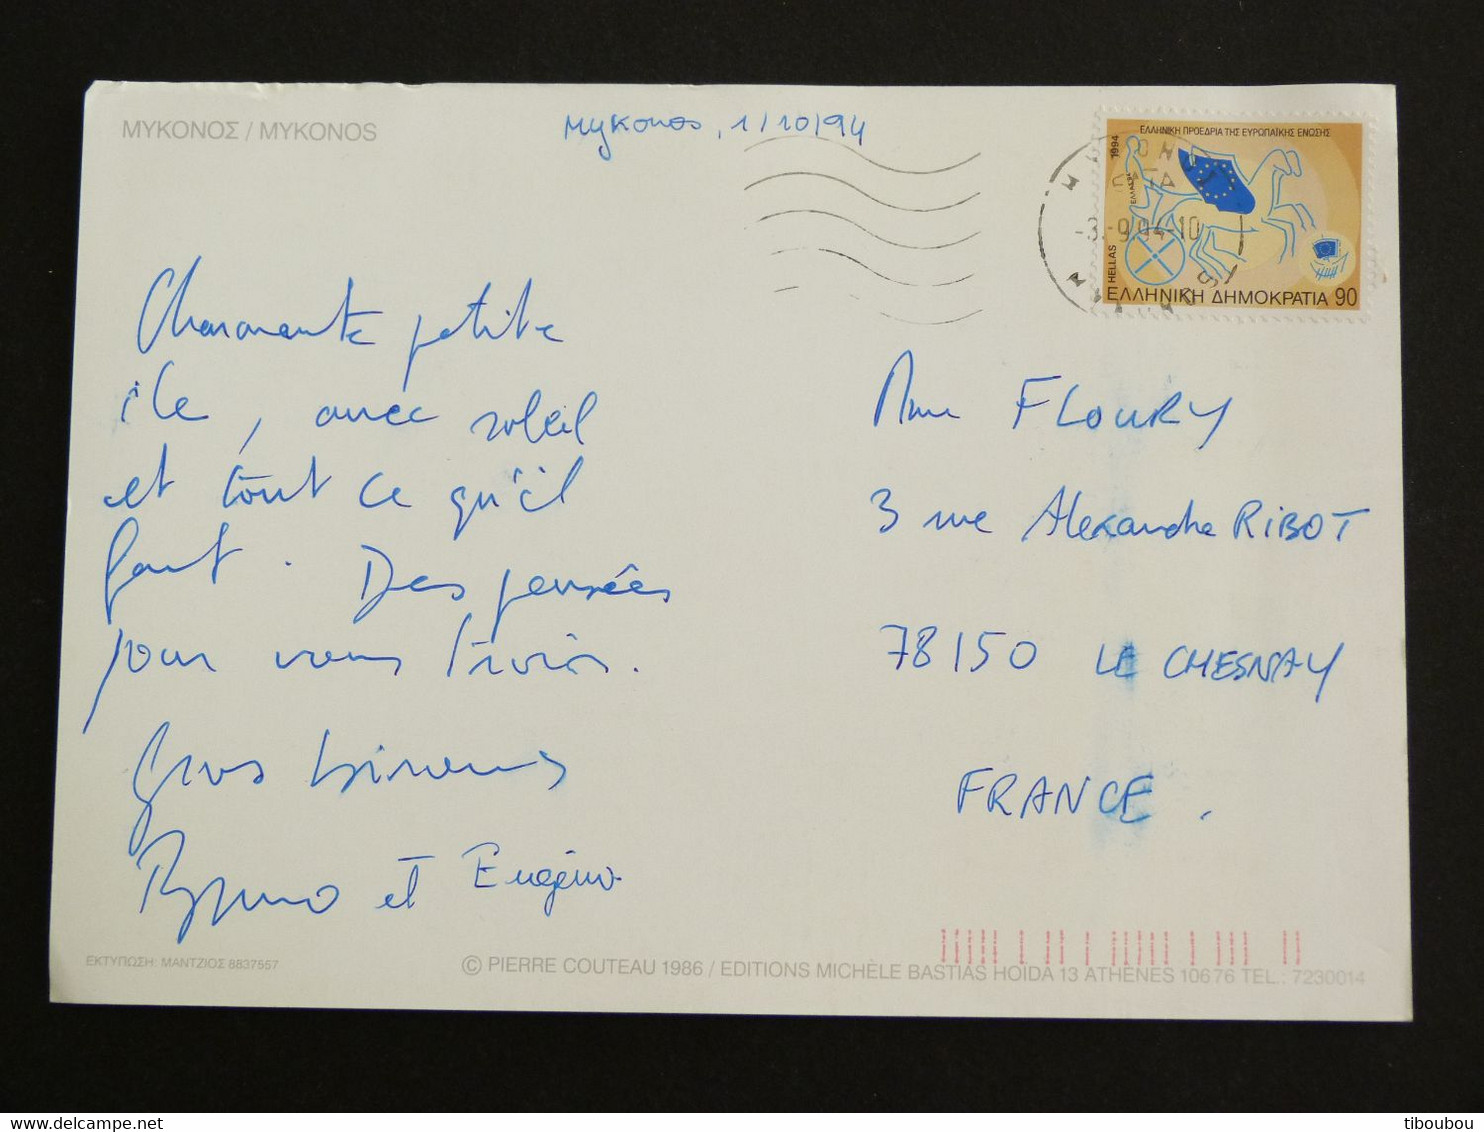 ΜΥΚΟΝΟΣ / MYKONOS
Mykonos, 1/10/94
ΕΛΛΗΝΙΚΗ ΠΡΟΕΔΡΙΑ ΤΗΣ ΕΥΡΩΠΑΪΚΗΣ ΕΝΩΣΗΣ
1994
HELLAS
ΕΛΛΗΝΙΚΗ ΔΗΜΟΚΡΑΤΙΑ 90
-3.-9.94-10
Charmante petite
île, avec soleil
et tout ce qu'il
faut. Des pensées
pour vous trois.
Gros bisous
Bruno et Eugénie
Mme FLOURY
3 rue Alexandre RIBOT
78150 LE CHESNAY
FRANCE.
ΕΚΤΥΠΩΣΗ: ΜΑΝΤΖΙΟΣ 8837557
© PIERRE COUTEAU 1986 / EDITIONS MICHÈLE BASTIAS HOIDA 13 ATHÈNES 106 76 TEL.: 7230014
tiboubou